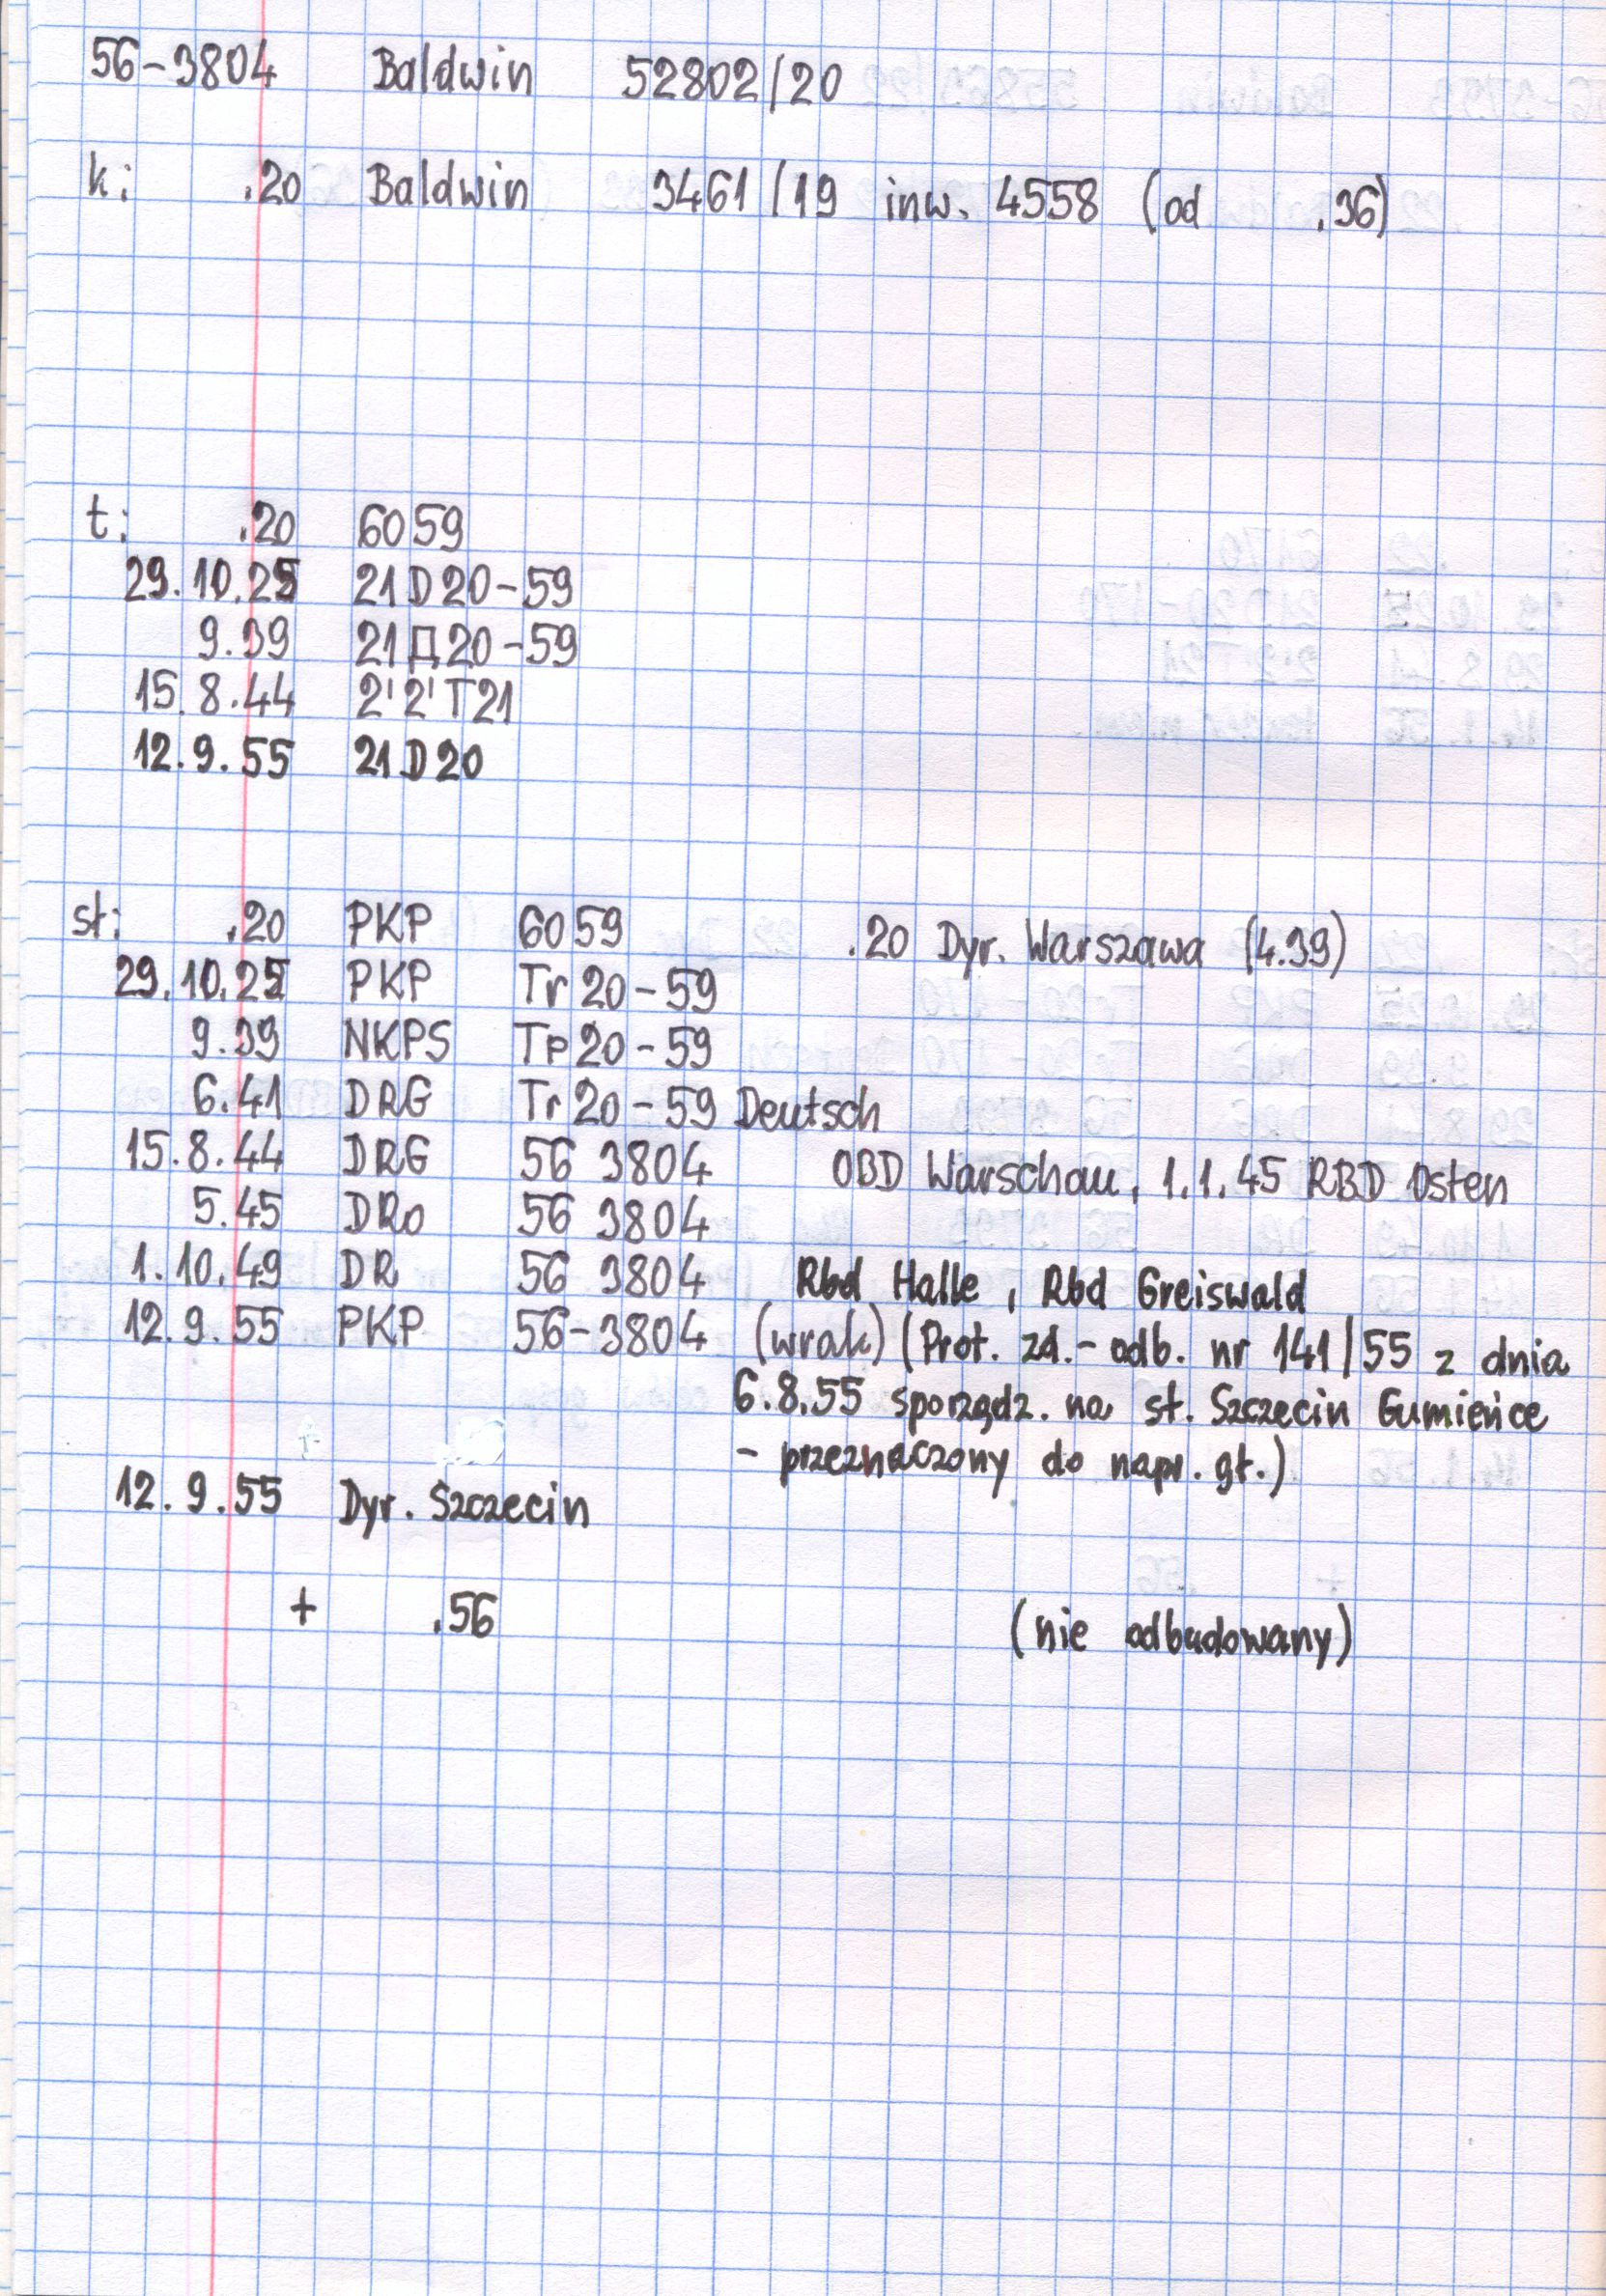 56-3804 Baldwin 52802/20
k: .20 Baldwin 3461/19 inw. 4558 (od .36)
t: .20 6059
29.10.25 21D20-59
9.39 21Д20-59
15.8.44 2'2'T21
12.9.55 21D20
st: .20 PKP 6059 .20 Dyr. Warszawa (4.39)
29.10.25 PKP Tr20-59
9.39 NKPS Tp20-59
6.41 DRG Tr20-59 Deutsch
15.8.44 DRG 56 3804 OBD Warschau, 1.1.45 RBD Osten
5.45 DRo 56 3804
1.10.49 DR 56 3804 Rbd Halle, Rbd Greiswald
12.9.55 PKP 56-3804 (wrak) (Prot. zd.-odb. nr 141/55 z dnia
6.8.55 sporządz. na st. Szczecin Gumieńce
- przeznaczony do napr. gł.)
12.9.55 Dyr. Szczecin
+ .56 (nie odbudowany)